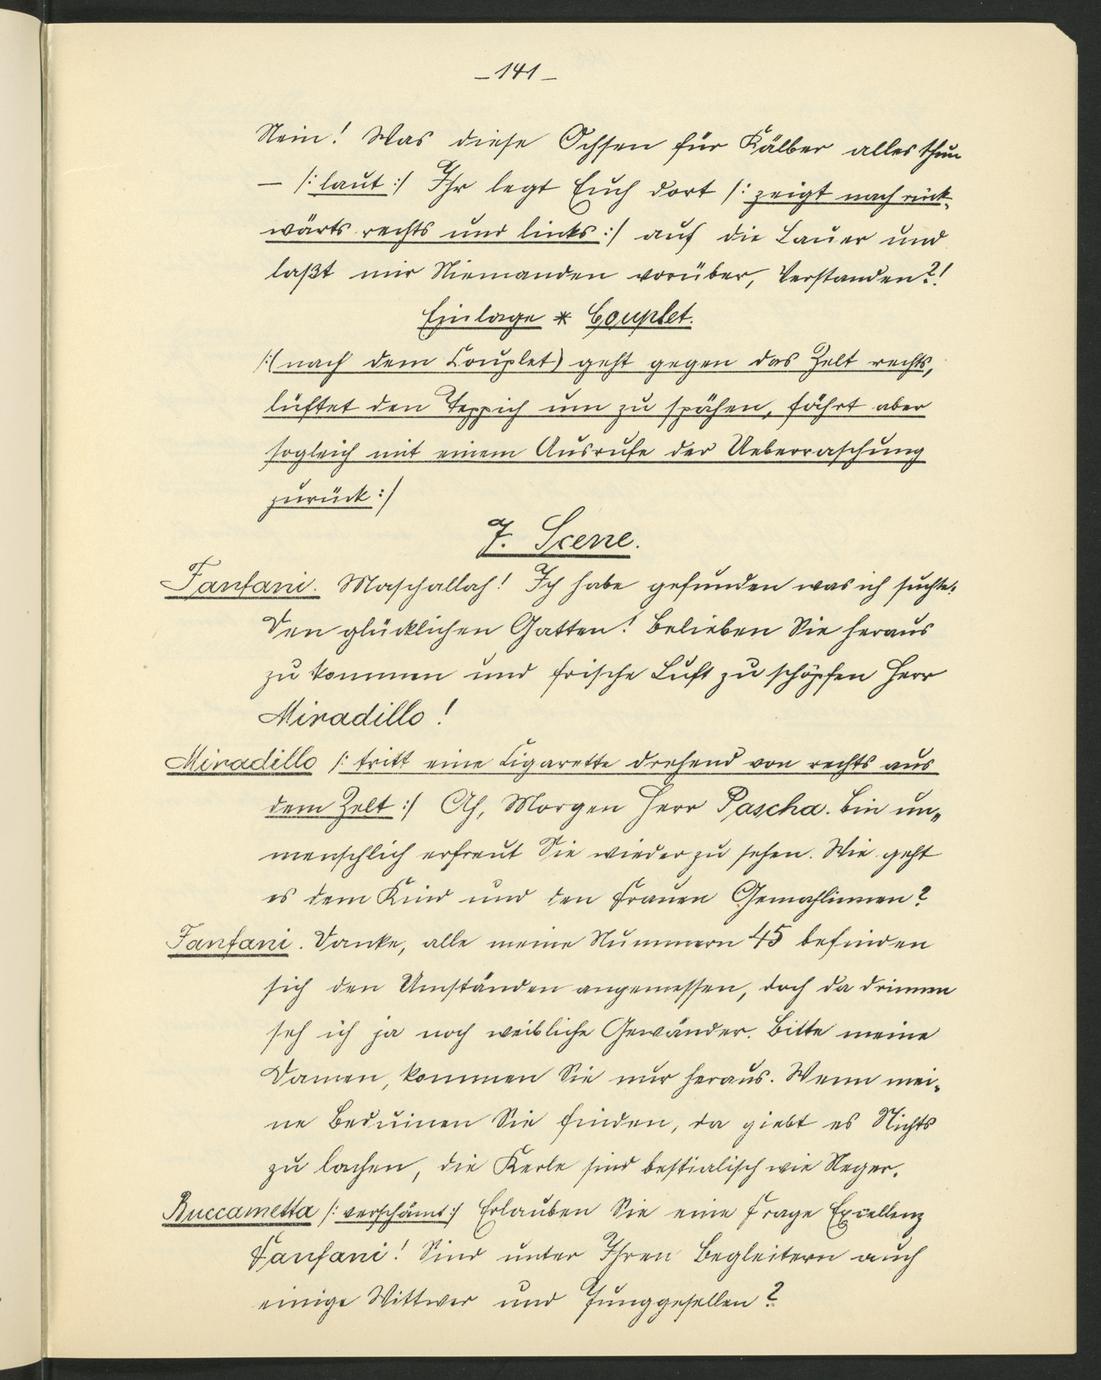 –141–
Nein! Was diese Ochsen für Kälber alles thun
— /: laut :/ Ihr legt Euch dort /: zeigt nach rück-
wärts rechts und links :/ auf die Lauer und
laßt mir Niemanden vorüber, Verstanden?!
Einlage * Couplet.
/:(nach dem Couplet) geht gegen das Zelt rechts,
lüftet den Teppich um zu spähen, fährt aber
sogleich mit einem Ausrufe der Ueberraschung
zurück :/
7. Scene.
Fanfani. Maschallah! Ich habe gefunden was ich suchte.
Den glücklichen Gatten! Belieben Sie heraus
zu kommen und frische Luft zu schöpfen Herr
Miradillo!
Miradillo /: tritt eine Cigarette drehend von rechts aus
dem Zelt :/ Ah, Morgen Herr Pascha. Bin un„
menschlich erfreut Sie wieder zu sehen. Wie geht
es dem Kind und den Frauen Gemahlinnen?
Fanfani. Danke, alle meine Nummern 45 befinden
sich den Umständen angemessen, doch da drinnen
seh ich ja noch weibliche Gewänder. Bitte meine
Damen, kommen Sie nur heraus. Wenn mei-
ne Beduinen Sie finden, da giebt es Nichts
zu lachen, die Kerle sind bestialisch wie Neger.
Buccametta /: verschämt :/ Erlauben Sie eine Frage Excellenz
Fanfani! Sind unter Ihren Begleitern auch
einige Wittwer und Junggesellen?